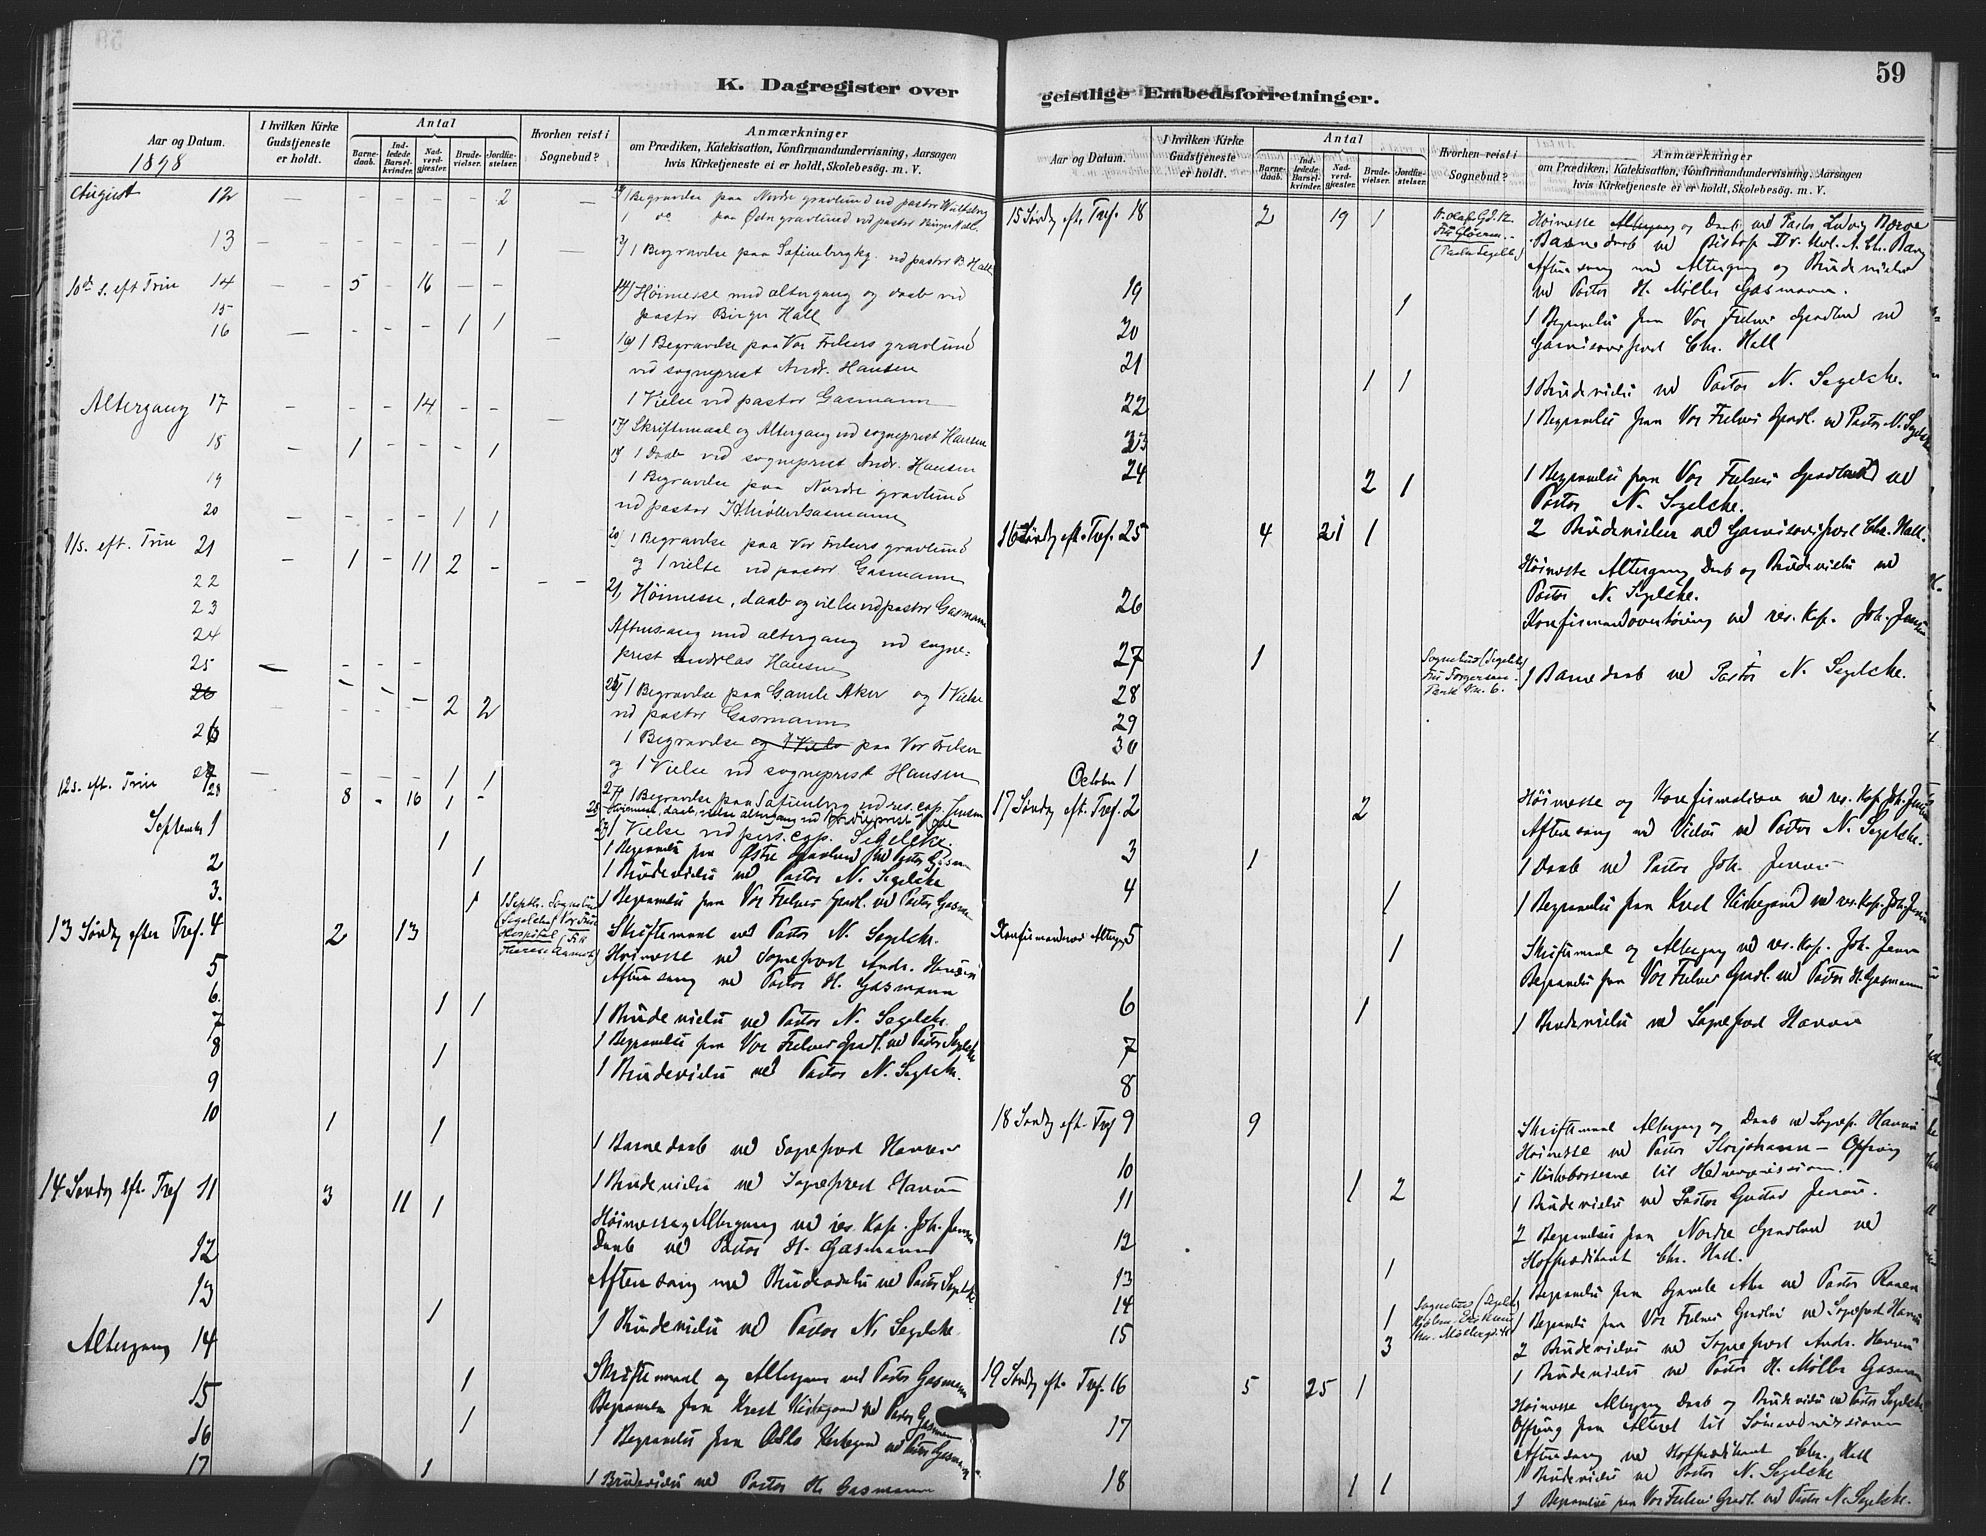 59
K. Dagregister over
geistlige Embedsforretninger.
Aar og Datum.
1898
I hvilken Kirke Gudstjeneste er holdt.
Antal
Barnedaab.
Indledede Barselkvinder.
Nadverdgjester.
Brudevielser.
Jordfæstelser.
Hvorhen reist i Sognebud?
Anmærkninger
om Prædiken, Katekisation, Konfirmandundervisning, Aarsagen
hvis Kirketjeneste ei er holdt, Skolebesøg. m. V.
August 12 - - - - 2 - 1 Begravelse paa Nordre gravlund ved pastor
1 do paa Østre gravlund ved pastor Birger Hall.
13 - - - - 1 - 13) 1 Begravelse paa Sofienberg kg. ved pastor B Hall
10de s. eft Trin 14 - - 5 - 16 - - 14) Høimesse med altergang og daab ved
pastor Birger Hall
15
16 - - - - 1 1 - 16) 1 Begravelse paa Vor Frelsers gravlund
ved sogneprest Andr. Hansen
1 Vielse ved pastor Gasmann
Altergang 17 - - - 14 - - - 17) Skriftemaal og Altergang ved sogneprest Hansen
18 - 1 - - - 1 1 Daab ved sogneprest Andr. Hansen
1 Begravelse paa Nordre gravlund
ved pastor H Møller Gasmann
19
20 - - - - 1 1 20) 1 Begravelse paa Vor Frelsers gravlund
og 1 vielse ved pastor Gasmann
11 s. eft. Trin 21 - 1 - 11 2 - - - 21) Høimesse, daab og vielse ved pastor Gasmann
Aftensang med altergang ved sogneprest
Andreas Hansen
22
23
24
25 - - - - 2 2 25) 1 Begravelse paa Gamle Aker og 1 Vielse
ved pastor Gasmann
26
26 1 Begravelse og 1 Vielse paa Vor Frelser
og 1 Vielse ved sogneprest Hansen
27 - - - - 1 1 27) 1 Begravelse paa Sofienberg ved res. cap. Jensen
12 s. eft. Trin 28 8 - 16 1 - 28
1 Vielse ved pers. cap. Segelcke.
September 1 1 1 Begravelse fra Østre Gravlund ved Pastor Gasmann
1 Brudevielse ved Pastor N. Segelcke
2 1
3. 1 1 Begravelse fra Vor Frelsers Gravl. ved Pastor Gasmann
13 Søndag efter Tref. 4 2 13 Skriftemaal ved Pastor N. Segelcke.
Høimesse ved Sogneprest Andr. Hansen
Aftensang ved Pastor H. Gasmann
5
6. 1 1 1 Brudevielse ved Pastor N. Segelcke.
7 1 Begravelse fra Vor Frelsers Gravl. ved Pastor Segelcke
8 1 1 Brudevielse ved Pastor N. Segelcke.
9
10 1 1 1 Barnedaab ved Sogneprest Hansen
1 Brudevielse ved Sogneprest Hansen
14 Søndag eft. Tref 11 3 11 1 Høimesse og Altergang ved res. Kap. Joh. Jensen
Daab ved Pastor H. Gasmann
Aftensang med Brudevielse ved Pastor Segelcke.
12
13 1 1 Brudevielse ved Pastor N. Segelcke
Altergang 14 Skriftemaal og Altergang ved Pastor Gasmann
15 1 Begravelse fra Krist Kirkegaard ved Pastor Gasmann
16 1 1 Begravelse fra Oslo Kirkegaard ved Pastor Gasmann
17 1 1 Brudevielse ved Pastor H. Gasmann
Aar og Datum.
I hvilken Kirke Gudstjeneste er holdt.
Antal
Barnedaab.
Indledede Barselkvinder.
Nadverdgjester.
Brudevielser.
Jordfæstelser.
Hvorhen reist i Sognebud?
Anmærkninger
om Prædiken, Katekisation, Konfirmandundervisning, Aarsagen
hvis Kirketjeneste ei er holdt, Skolebesøg. m. V.
15 Søndag eft. Tref. 18 2 19 1 Høimesse Altergang og Daab ved Pastor Ludvig
Barnedaab ved Biskop
Aftensang med Altergang og Brudevielse
ved Pastor H. Møller Gasmann.
19 1 1 Begravelse fra Vor Frelsers Gravlund ved
Garnisonsprest Chr. Hall
20
21 1 1 1 Brudevielse ved Pastor N. Segelcke.
1 Begravelse fra Vor Frelsers Gravl. ved Pastor N. Segelcke
22
23
24 2 1 1 Begravelse fra Vor Frelsers Gravlund ved
Pastor N. Segelcke.
2 Brudevielser ved Garnisonsprest Chr. Hall.
16 Søndag eft. Tref. 25 4 21 1 Høimesse Altergang Daab og Brudevielse ved
Pastor N. Segelcke.
26 Konfirmandoverhøring ved res. Kap. Joh. Jensen
27 1 1 Barnedaab ved Pastor N. Segelcke.
28
29
30
October 1
17 Søndag eft. Tref. 2 2 Høimesse og Konfirmation ved res. Kap. Joh. Jensen
Aftensang med Vielse ved Pastor N. Segelcke.
3 1 1 Daab ved Pastor Joh. Jensen
4 1 1 Begravelse fra Krist Kirkegaard ved res. Kap. Joh. Jensen
Konfirmandernes Altergang 5 1 Skriftemaal og Altergang ved res. Kap. Joh. Jensen
Begravelse fra Vor Frelsers Gravl. ved Pastor H. Gasmann
6 1 1 Brudevielse ved Sogneprest Hansen
7
8
18 Søndag eft. Tref 9 9 Skriftemaal Altergang og Daab ved Sognep. Hansen
Høimesse ved Pastor Storjohann - Ofring
i Kirkebøsserne til Hedningemissionen.
10 1 2 1 Brudevielse ved Pastor Gustav Jensen.
11 2 Begravelser fra Nordre Gravlund ved
Hofprædikant Chr. Hall.
12
13 1 1 Begravelse fra Gamle Aker ved Pastor
14 1 1 Begravelse fra Vor Frelsers Gravlund ved Sogneprest Hansen
15 3 2 Brudevielser ved Sogneprest Andr. Hansen
1 Brudevielse ved Pastor H. Møller Gasmann
19 Søndag eft. Tref. 16 5 25 1 Høimesse Altergang Daab og Brudevielse ved Pastor Segelcke
Offring fra Alteret til Sømandsmissionen
Aftensang ved Hofprædikant Chr. Hall
17 1 Brudevielse ved Pastor N. Segelcke
18 1 1 1 Begravelse fra Vor Frelsers Gravl. ved Pastor N. Segelcke.